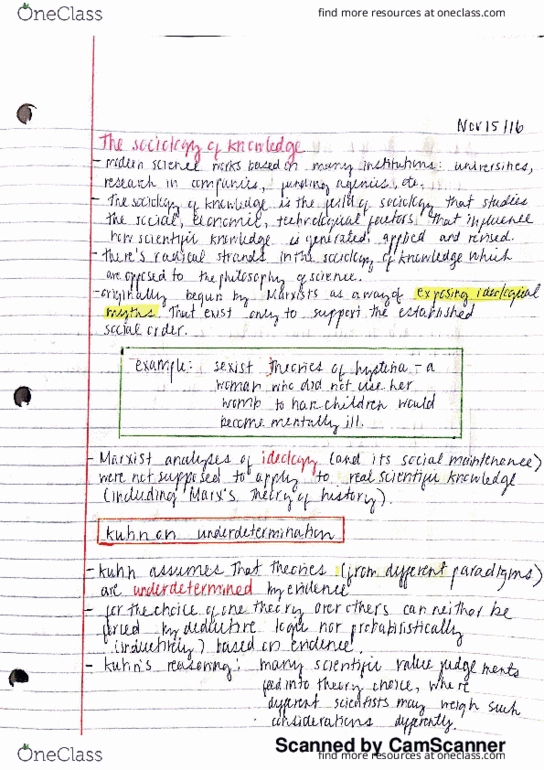 OneClass
find more resources at oneclass.com
Nov 15/16
The sociology of knowledge
- modern science works based on many institutions: universities,
research in companies, funding agencies, etc.
- The sociology of knowledge is the field of sociology that studies
the social, economic, technological factors that influence
how scientific knowledge is generated, applied and revised.
- there's radical strands in the sociology of knowledge which
are opposed to the philosophy of science.
- originally begun by Marxists as a way of exposing ideological
myths. That exist only to support the established
social order.
example: sexist theories of hysteria - a
woman who did not use her
womb to have children would
become mentally ill.
- Marxist analyses of ideology (and its social maintenance)
were not supposed to apply to real scientific knowledge
(including Marx's theory of history).
kuhn on underdetermination
- kuhn assumes that theories (from different paradigms)
are underdetermined by evidence
- for the choice of one theory over others can neither be
forced by deductive logic nor probabilistically
(inductively) based on evidence.
- kuhn's reasoning: many scientific value judgements
feed into theory choice, where
different scientists may weigh such
considerations differently.
Scanned by CamScanner
OneClass
find more resources at oneclass.com